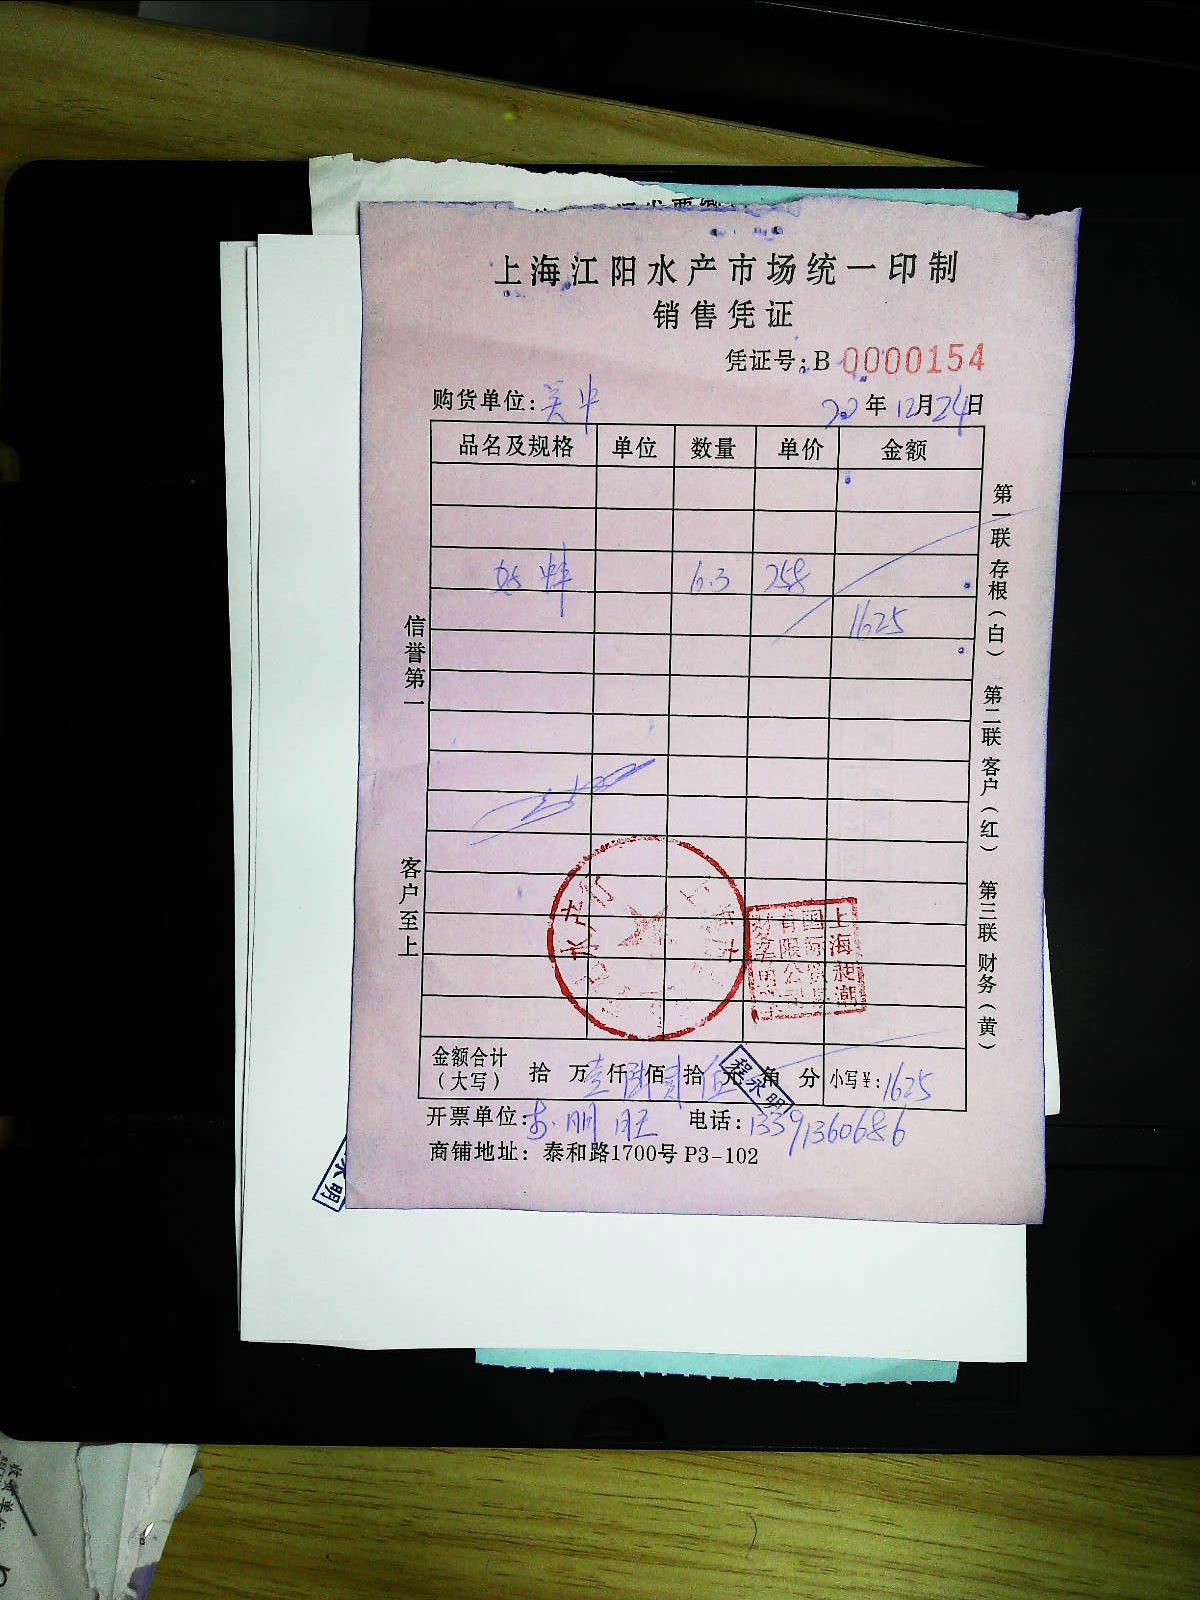 上海江阳水产市场统一印制
销售凭证
凭证号:B 0000154
购货单位: 22年12月24日
品名及规格 单位 数量 单价 金额
6.3 258
1625
信誉第一
客户至上
第一联存根(白) 第二联客户(红) 第三联财务(黄)
水产行
上海昶潮
有限公司
金额合计(大写) 拾 万壹仟陆佰贰拾伍元 角 分 小写¥:1625
程永明
开票单位: 电话:13391360686
商铺地址:泰和路1700号 P3-102
永明